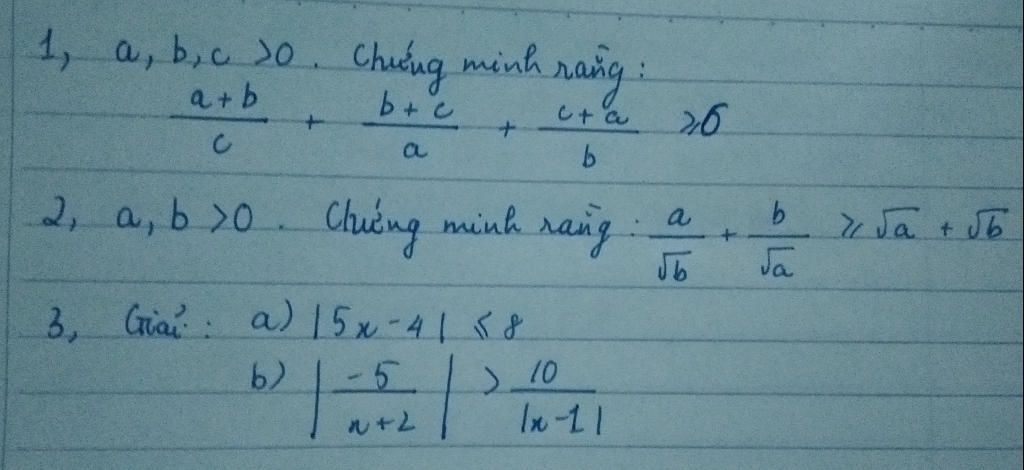 1, a, b, c >0. Chứng minh rằng:
\frac{a+b}{c} + \frac{b+c}{a} + \frac{c+a}{b} ⩾6
2, a, b >0. Chứng minh rằng: \frac{a}{\sqrt{b}} + \frac{b}{\sqrt{a}} ⩾ \sqrt{a} + \sqrt{b}
3, Giải: a) |5x-4| ⩽ 8
b) |\frac{-5}{x+2}| > \frac{10}{|x-1|}